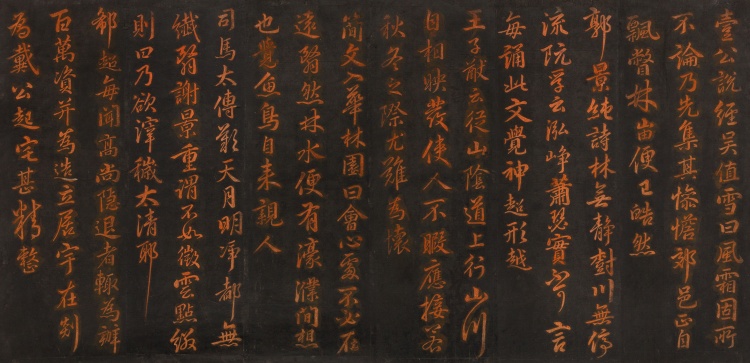 壹公說經吳值雪曰風霜固所
不論乃先集其慘憺郊邑正自
飄瞥林岫便已皓然
郭景純詩林無靜樹川無停
流阮孚云泓崢蕭瑟實不可言
每誦此文覺神超形越
王子猷云從山陰道上行山川
自相映發使人不暇應接若
秋冬之際尤難為懷
簡文入華林園曰會心處不必在
遠翳然林水便有濠濮間想
也覺魚鳥自來親人
司馬太傅歎天月明淨都無
纖翳謝景重謂不如微雲點綴
則曰乃欲滓穢太清耶
郗超每聞高尚隱退者輒為辦
百萬資并為造立居宇在剡
為戴公起宅甚精整